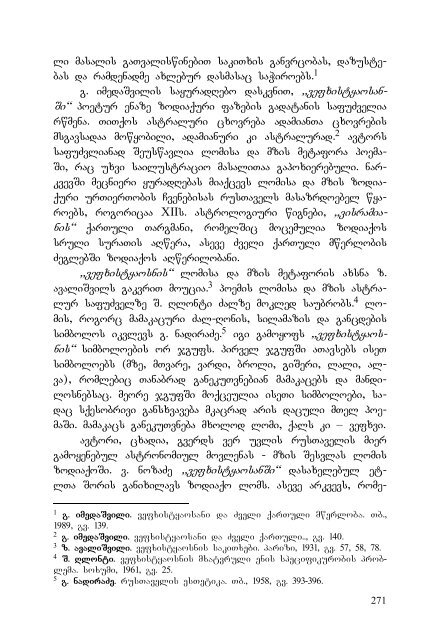 ლი მასალის გათვალისწინებით საკითხის განვრცობას, დაზუსტე-
ბას და რამდენადმე ახლებურ დასმასაც საჭიროებს.1
გ. იმედაშვილის საყურადღებო დასკვნით, „ვეფხისტყაოსან-
ში“ პოეტურ ენაზე ზოდიაქური ფაზების გადატანის საფუძველია
რწმენა. თითქოს ასტრალური ცხოვრება ადამიანთა ცხოვრების
მსგავსადაა მოწყობილი, ადამიანური კი ასტრალურად.2 ავტორს
საფუძვლიანად შეუსწავლია ლომისა და მზის მეტაფორა პოემა-
ში, რაც უხვი საილუსტრაციო მასალითაა გაპოხიერებული. ნარ-
კვევში მეცნიერი ყურადღებას მიაქცევს ლომისა და მზის ზოდია-
ქური ურთიერთობის ჩვენებისას რუსთაველს მასაზრდოებელ წყა-
როებს, როგორიცაა XIIს. ასტროლოგიური წიგნები, „ვისრამია-
ნის“ ქართული თარგმანი, რომელშიც მოცემულია ზოდიაქოს
სრული სურათის აღწერა, ასევე ძველი ქართული მწერლობის
ძეგლებში ზოდიაქოს აღწერილობანი.
„ვეფხისტყაოსნის“ ლომისა და მზის მეტაფორის ახსნა ზ.
ავალიშვილს გაკვრით მოუცია.3 პოემის ლომისა და მზის ასტრა-
ლურ საფუძველზე შ. ღლონტი ძალზე მოკლედ საუბრობს.4 ლო-
მის, როგორც მამაკაცური ძალ-ღონის, სილამაზის და განცდების
სიმბოლოს იკვლევს გ. ნადირაძე.5 იგი გამოყოფს „ვეფხისტყაოს-
ნის“ სიმბოლოების ორ ჯგუფს. პირველ ჯგუფში ათავსებს ისეთ
სიმბოლოებს (მზე, მთვარე, ვარდი, ბროლი, გიშერი, ლალი, ალ-
ვა), რომლებიც თანაბრად განეკუთვნებიან მამაკაცებს და მანდი-
ლოსნებსაც. მეორე ჯგუფში მოქცეულია ისეთი სიმბოლოები, სა-
დაც სქესობრივი განსხვავება მკაცრად არის დაცული მთელ პოე-
მაში. მამაკაცს განეკუთვნება მხოლოდ ლომი, ქალს კი – ვეფხვი.
ავტორი, ცხადია, გვერდს ვერ უვლის რუსთაველის მიერ
გამოყენებულ ასტრონომიულ მოვლენას - მზის შესვლას ლომის
ზოდიაქოში. ვ. ნოზაძე „ვეფხისტყაოსანში“ დასახელებულ ეტ-
ლთა შორის განიხილავს ზოდიაქო ლომს. ასევე არკვევს, რომე-
1 გ. იმედაშვილი. ვეფხისტყაოსანი და ძველი ქართული მწერლობა. თბ.,
1989, გვ. 139.
2 გ. იმედაშვილი. ვეფხისტყაოსანი და ძველი ქართული.., გვ. 140.
3 ზ. ავალიშვილი. ვეფხისტყაოსნის საკითხები. პარიზი, 1931, გვ. 57, 58, 78.
4 შ. ღლონტი. ვეფხისტყაოსნის მხატვრული ენის სპეციფიკურობის პრობ-
ლემა. სოხუმი, 1961, გვ. 25.
5 გ. ნადირაძე. რუსთაველის ესთეტიკა. თბ., 1958, გვ. 393-396.
271